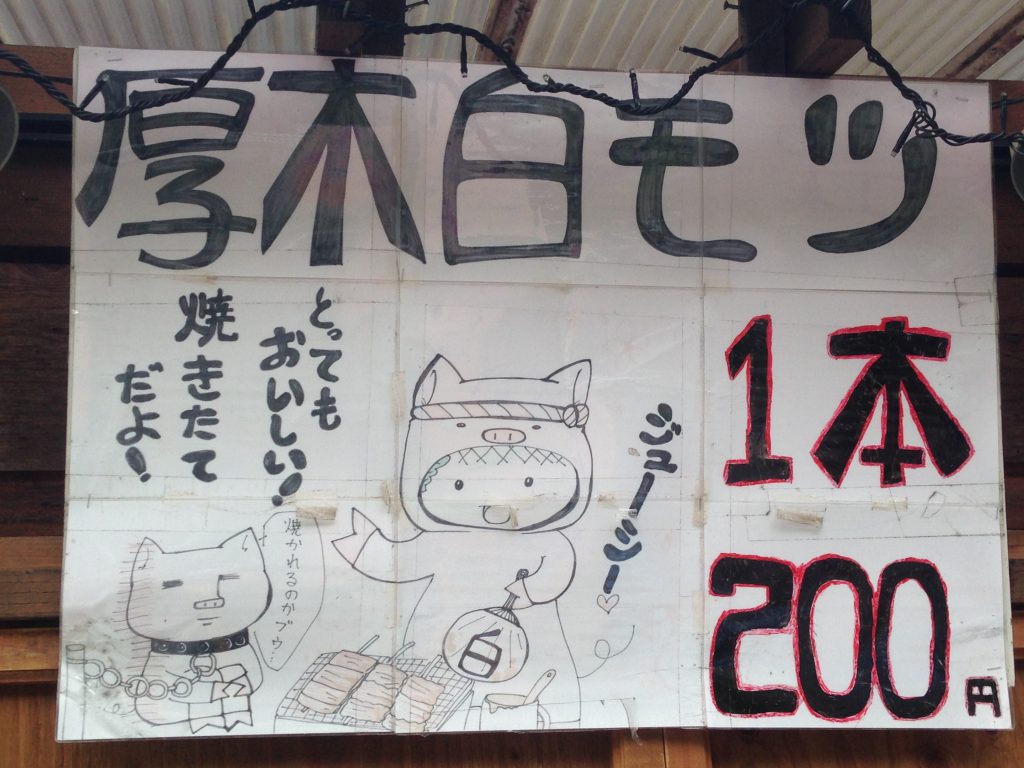 厚木白モツ
とっても
おいしい!
焼きたて
だよ!
ジューシー♡
1本
200円
焼かれるのか
ブゥ…
白